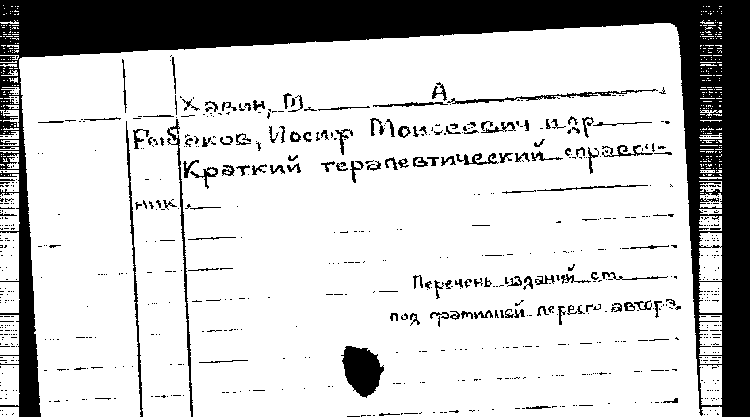 Хавин, М. А.
Рыбаков, Иосиф Моисеевич и др.
Краткий терапевтический справоч-
ник.
Перечень изданий см.
под фамилией первого автора.